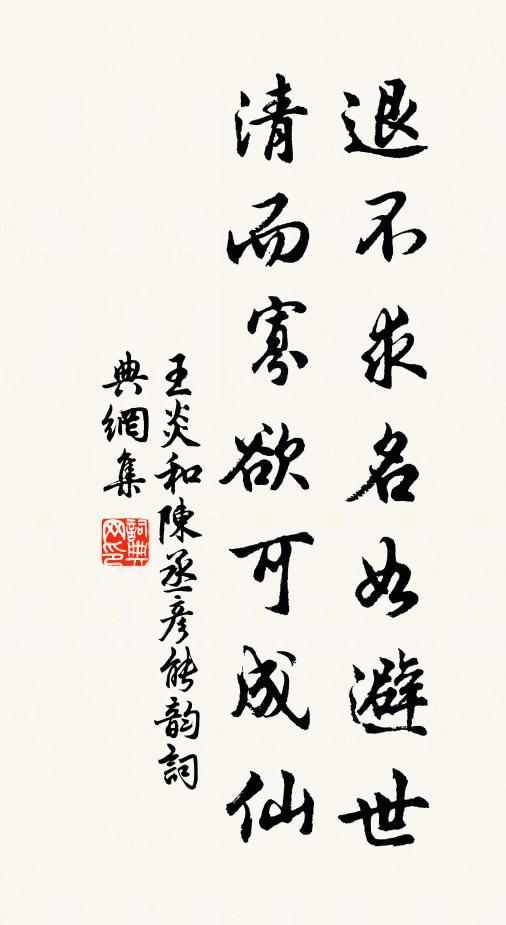 退不求名如避世
清而寡欲可成仙
王炎和陳丞彦能韵詞
典網集
詞典網印